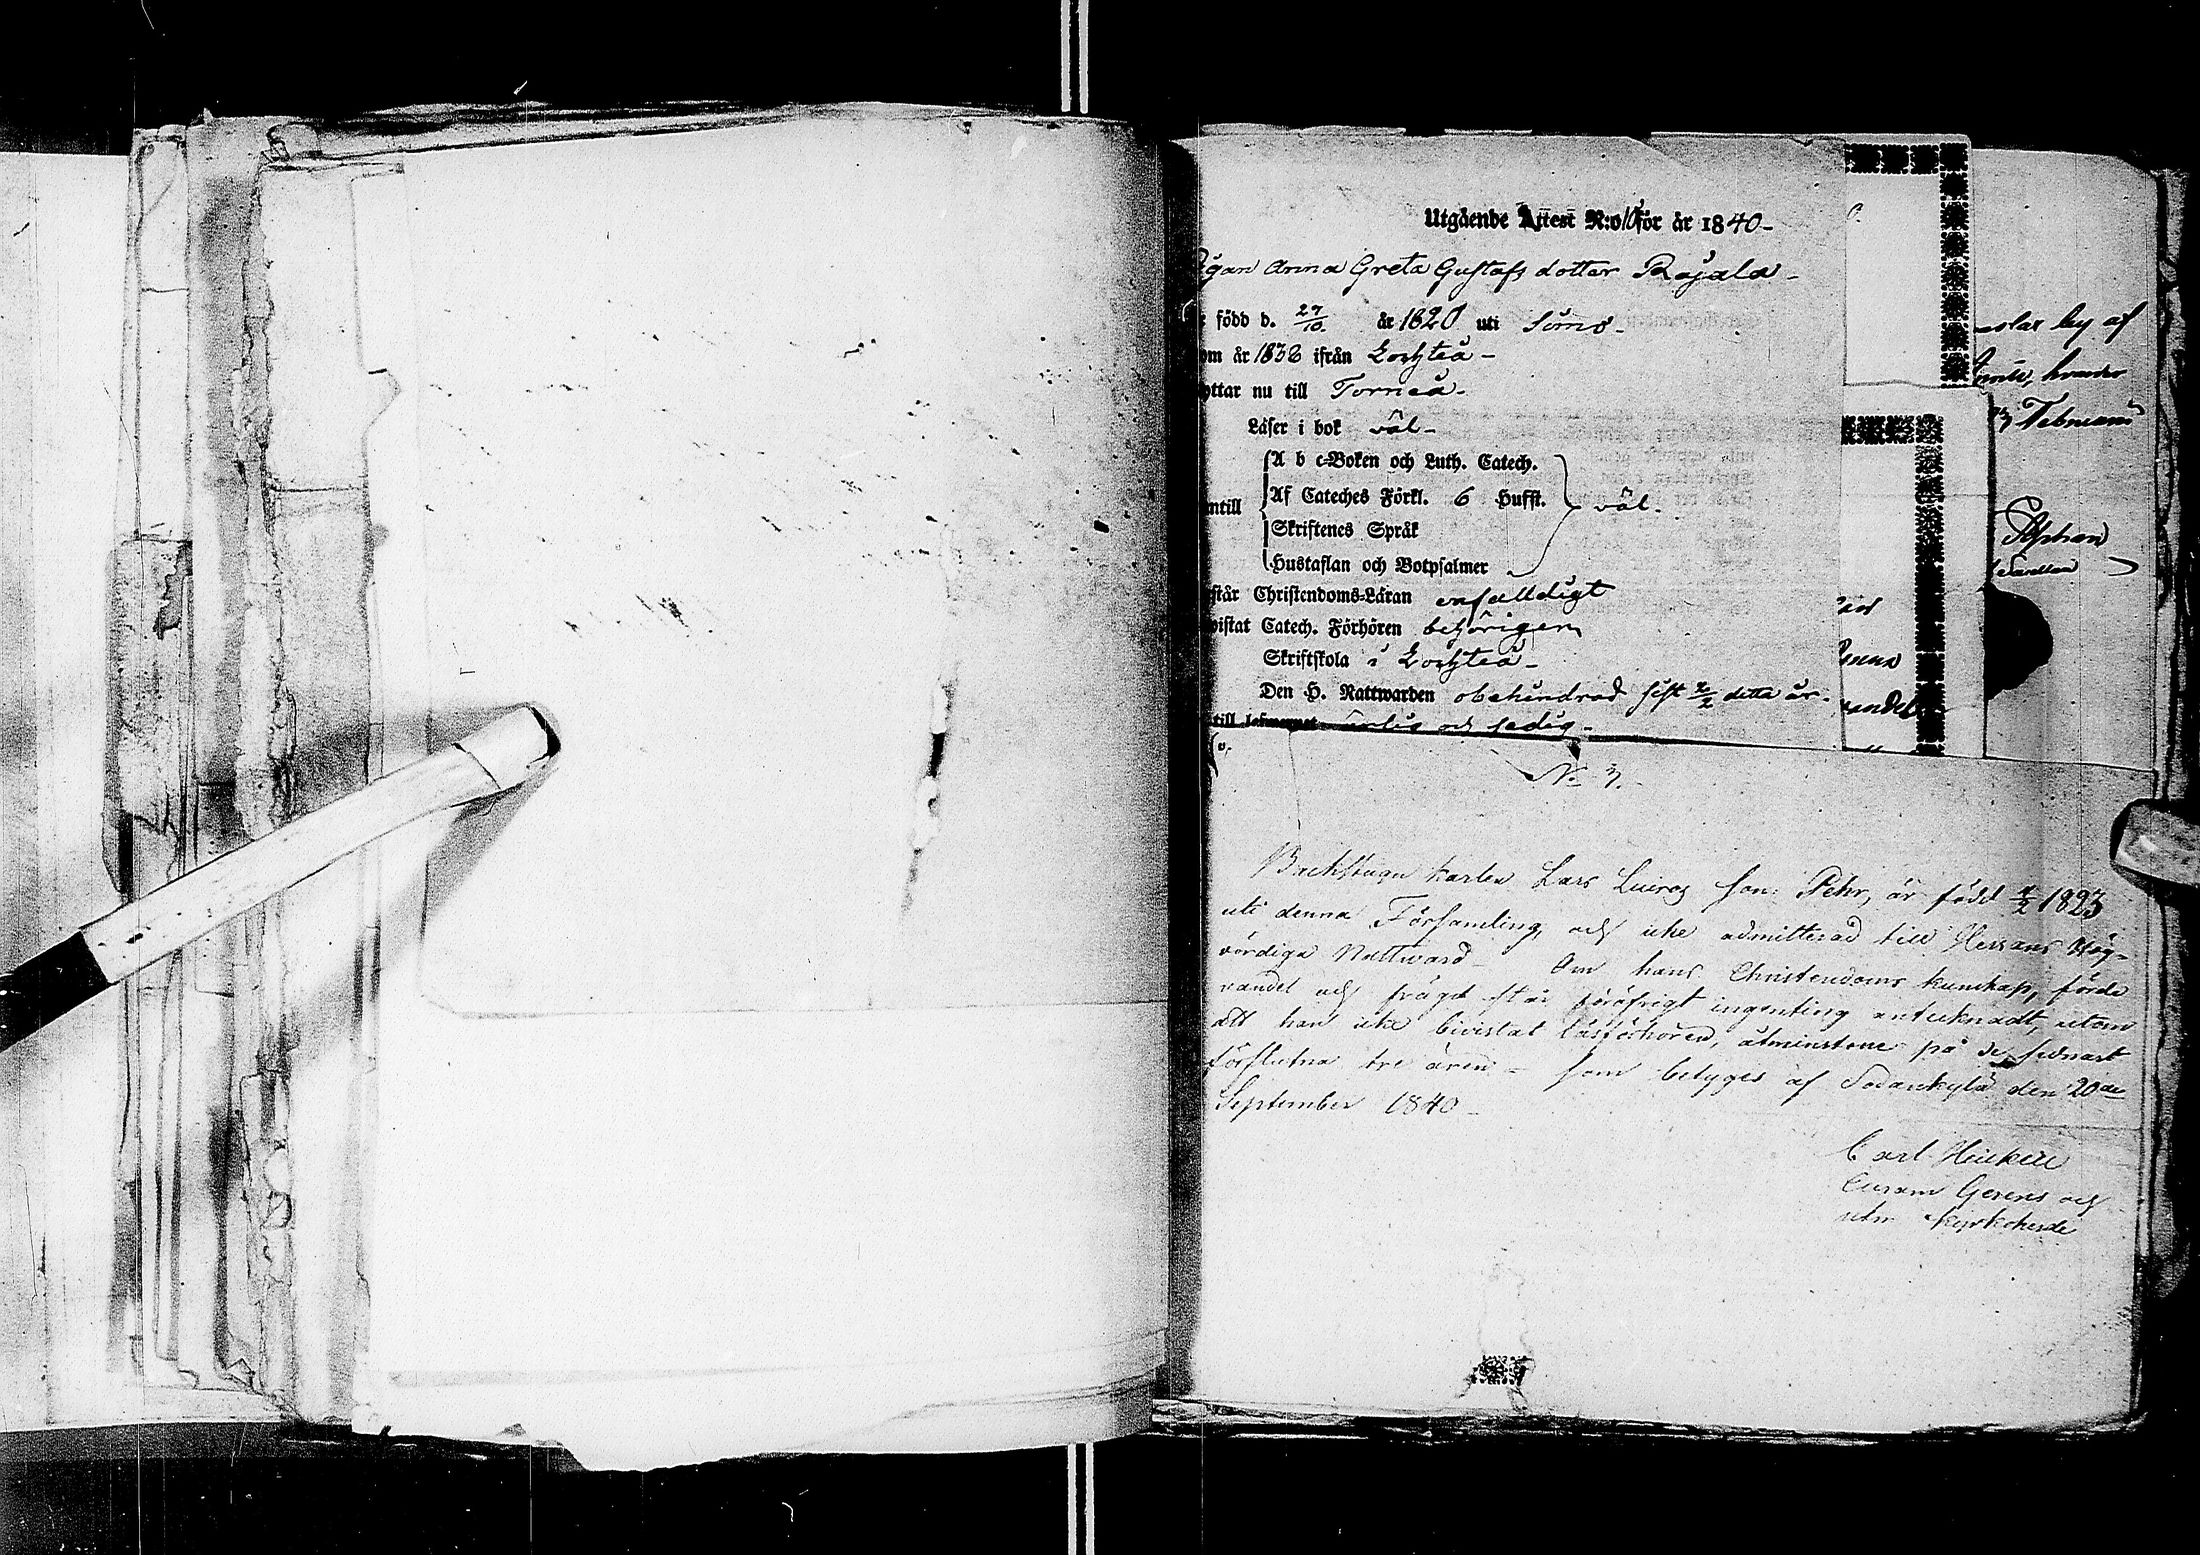 Utgående Attest N:o 10 för år 1840 -
Pigan Anna Greta Gustafs dotter Rajala -
född d. 27/10 år 1820 uti Simo -
om år 1838 ifrån Lochteå -
yttar nu till Torneå -
Läser i bok väl -
A b c-Boken och Luth. Catech.
ntill Af Cateches Förkl. 6 Hufst. väl -
Skriftenes Språk
Hustaflan och Botpsalmer
står Christendoms-Läran enfaldigt
vistat Catech. Förhören behörigen
Skriftskola i Lochteå -
Den H. Nattwarden obehindrad sist 2/2 detta år -
till lefwernet ärlig och sedig -
by af
hvarder
Februarii
vandel
No 7.
Backstugu karlen Lars Luiros son: Pehr, är född 4/2 1823
uti denna Församling, och icke admitterad till Herrans Hög-
vördiga Nattward - Om hans Christendoms kunskap, förde
vandel och frägd står för öfrigt ingenting antecknadt, utom
att han icke bivistat läsförhören, åtminstone på de sednast
förflutna tre åren - som betyges af Sodankylä den 20de
September 1840 -
Carl Heickell
Curam Gerens och
utn Kyrkoherde